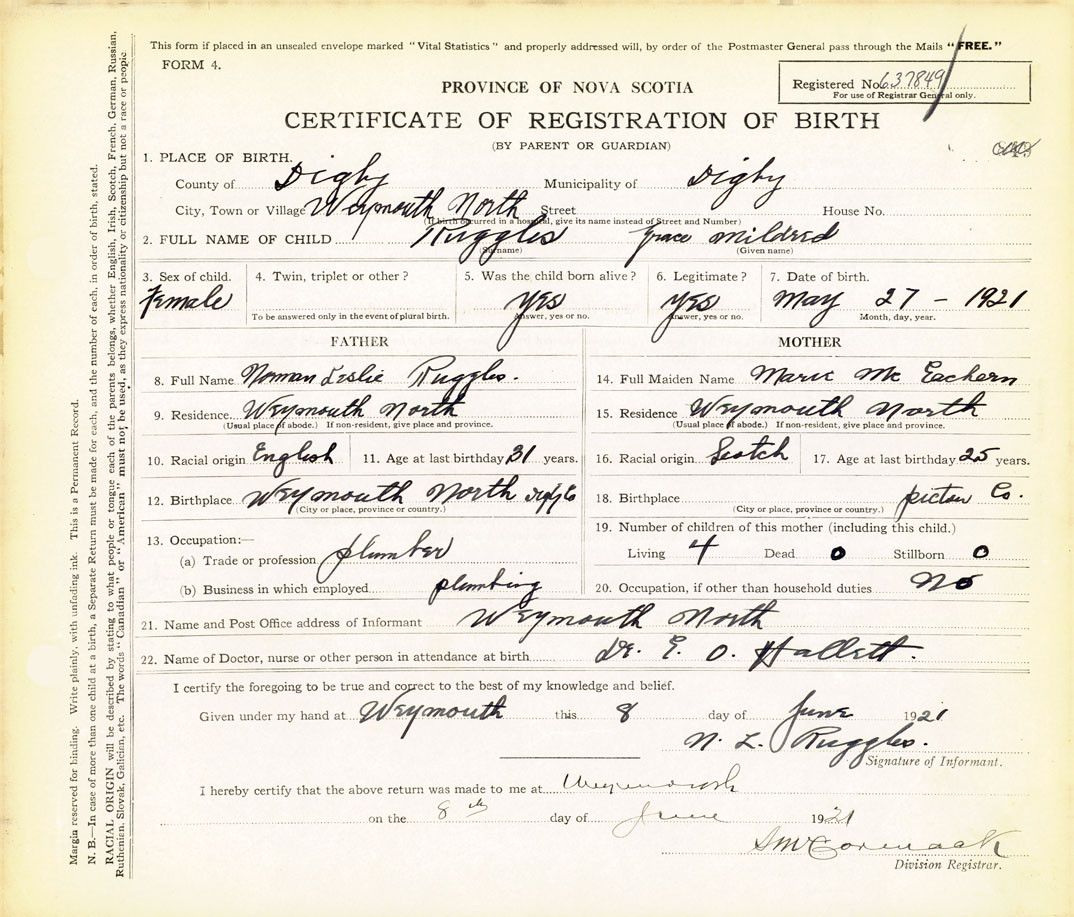 This form if placed in an unsealed envelope marked "Vital Statistics" and properly addressed will, by order of the Postmaster General pass through the Mails "FREE."
FORM 4.
Registered No. 637849
For use of Registrar General only.
PROVINCE OF NOVA SCOTIA
CERTIFICATE OF REGISTRATION OF BIRTH
(BY PARENT OR GUARDIAN)
1. PLACE OF BIRTH.
County of Digby Municipality of Digby
City, Town or Village Weymouth North Street House No.
(If birth occurred in a hospital, give its name instead of Street and Number)
2. FULL NAME OF CHILD Ruggles Grace Mildred
(Surname) (Given name)
3. Sex of child. 4. Twin, triplet or other? 5. Was the child born alive? 6. Legitimate? 7. Date of birth.
Female yes yes May 27 - 1921
To be answered only in the event of plural birth. Answer, yes or no. Answer, yes or no. Month, day, year.
FATHER MOTHER
8. Full Name Norman Leslie Ruggles. 14. Full Maiden Name Marie Mc Eachern
9. Residence Weymouth North 15. Residence Weymouth North
(Usual place of abode.) If non-resident, give place and province. (Usual place of abode.) If non-resident, give place and province.
10. Racial origin English 11. Age at last birthday 31 years. 16. Racial origin Scotch 17. Age at last birthday 25 years.
12. Birthplace Weymouth North 18. Birthplace pictou Co.
(City or place, province or country.) (City or place, province or country.)
13. Occupation:— 19. Number of children of this mother (including this child.)
(a) Trade or profession plumber Living 4 Dead 0 Stillborn 0
(b) Business in which employed plumbing 20. Occupation, if other than household duties No
21. Name and Post Office address of Informant Weymouth North
22. Name of Doctor, nurse or other person in attendance at birth Dr. E. O. Hallett.
I certify the foregoing to be true and correct to the best of my knowledge and belief.
Given under my hand at Weymouth this 8 day of June 1921
N. L. Ruggles.
Signature of Informant.
I hereby certify that the above return was made to me at Weymouth
on the 8th day of June 1921
Division Registrar.
Margin reserved for binding. Write plainly, with unfading ink. This is a Permanent Record.
N. B.—In case of more than one child at a birth, a Separate Return must be made for each, and the number of each, in order of birth, stated.
RACIAL ORIGIN will be described by stating to what people or tongue each of the parents belongs, whether English, Irish, Scotch, French, German, Russian,
Ruthenian, Slovak, Galician, etc. The words "Canadian" or "American" must not be used, as they express nationality or citizenship but not a race or people.